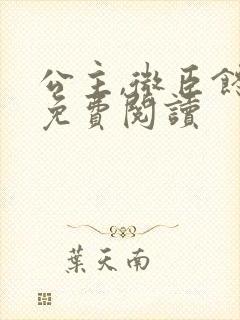 公主,微臣
免費閱讀
葉天南